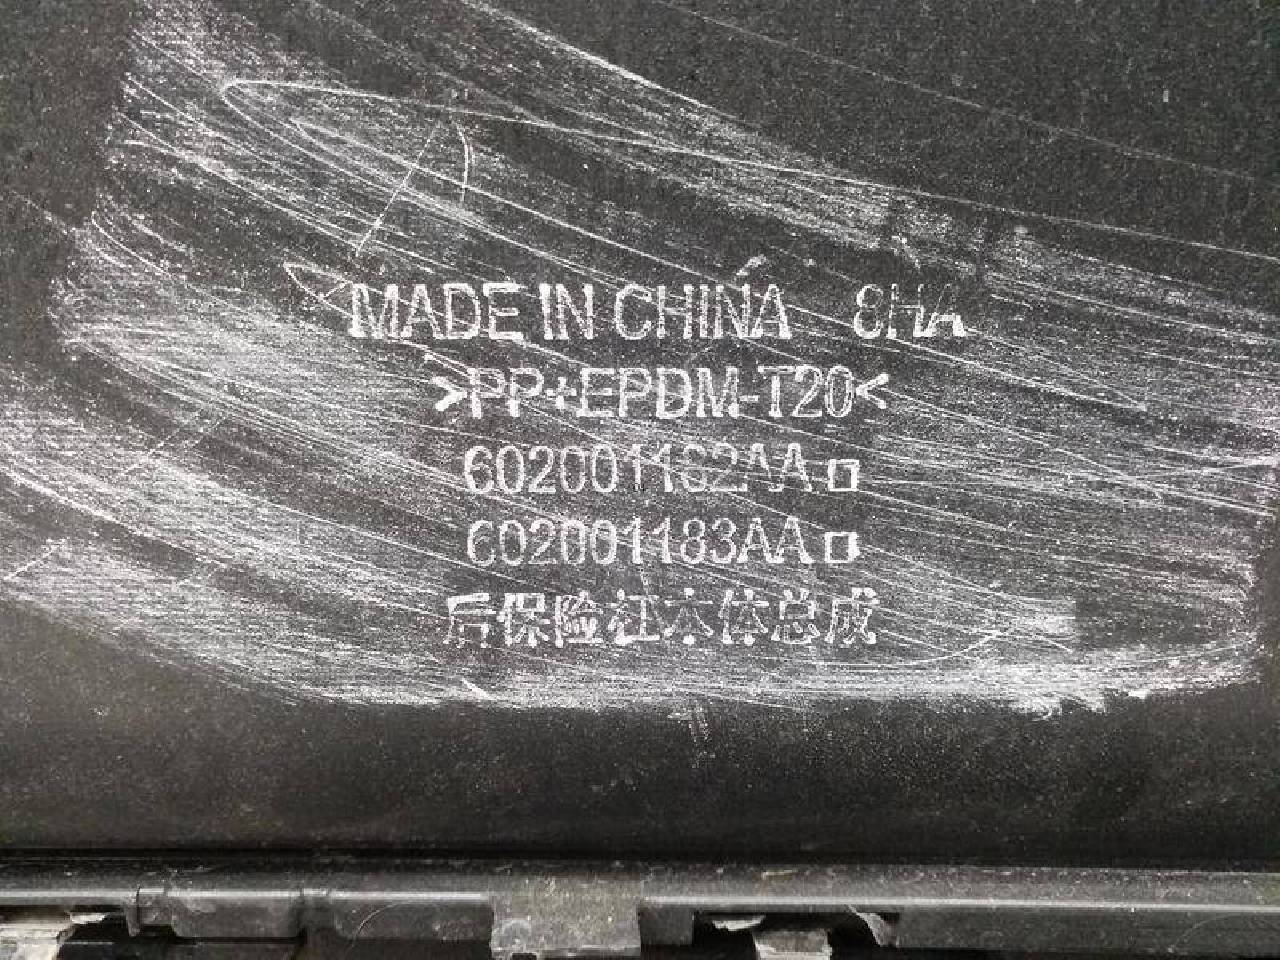 MADE IN CHINA 8HA
>PP+EPDM-T20<
602001162AA□
602001183AA□
后保险杠本体总成